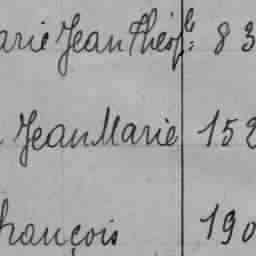 arie Jean Théofle: 83
Jean Marie 152
François 190